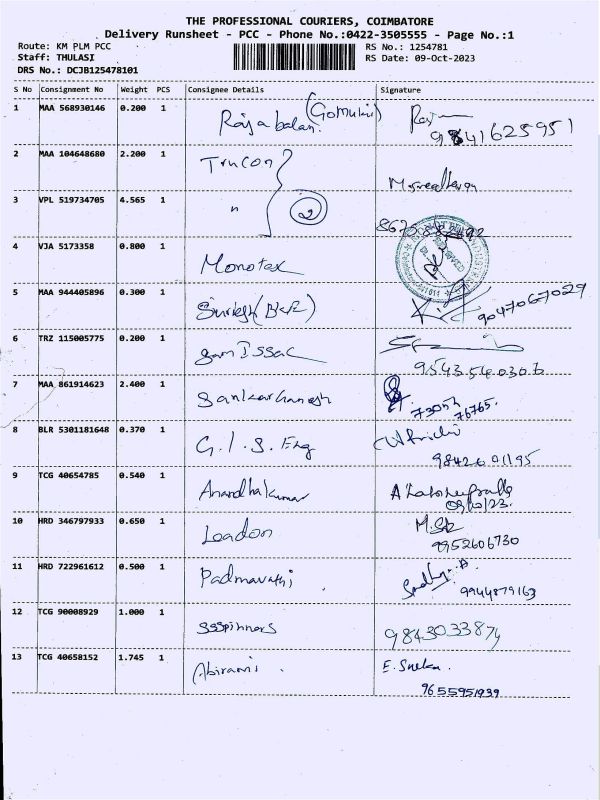 THE PROFESSIONAL COURIERS, COIMBATORE
Delivery Runsheet - PCC - Phone No.:0422-3505555 - Page No.:1
Route: KM PLM PCC
RS No.: 1254781
Staff: THULASI
RS Date: 09-Oct-2023
DRS No.: DCJB125478101
S No Consignment No Weight PCS Consignee Details Signature
1 MAA 568930146 0.200 1 Rajabalan. (Gomulai)
9841625951
2 MAA 104648680 2.200 1 Trucon
3 VPL 519734705 4.565 1 " 2
4 VJA 5173358 0.800 1 Monotax
5 MAA 944405896 0.300 1 Suriesh 9047067029
6 TRZ 115005775 0.200 1 Sam Issac
9543540306
7 MAA 861914623 2.400 1 Sankar Ganesh
73052 76765.
8 BLR 5301181648 0.370 1 G.I.S. Eng
9842601195
9 TCG 40654785 0.540 1 Anandhakumar
09/10/23.
10 HRD 346797933 0.650 1 London
9952606730
11 HRD 722961612 0.500 1 Padmavathi
9944879163
12 TCG 90008929 1.000 1 SSSpinners 9843033874
13 TCG 40658152 1.745 1 Abirami. E. Sneka.
9655951939